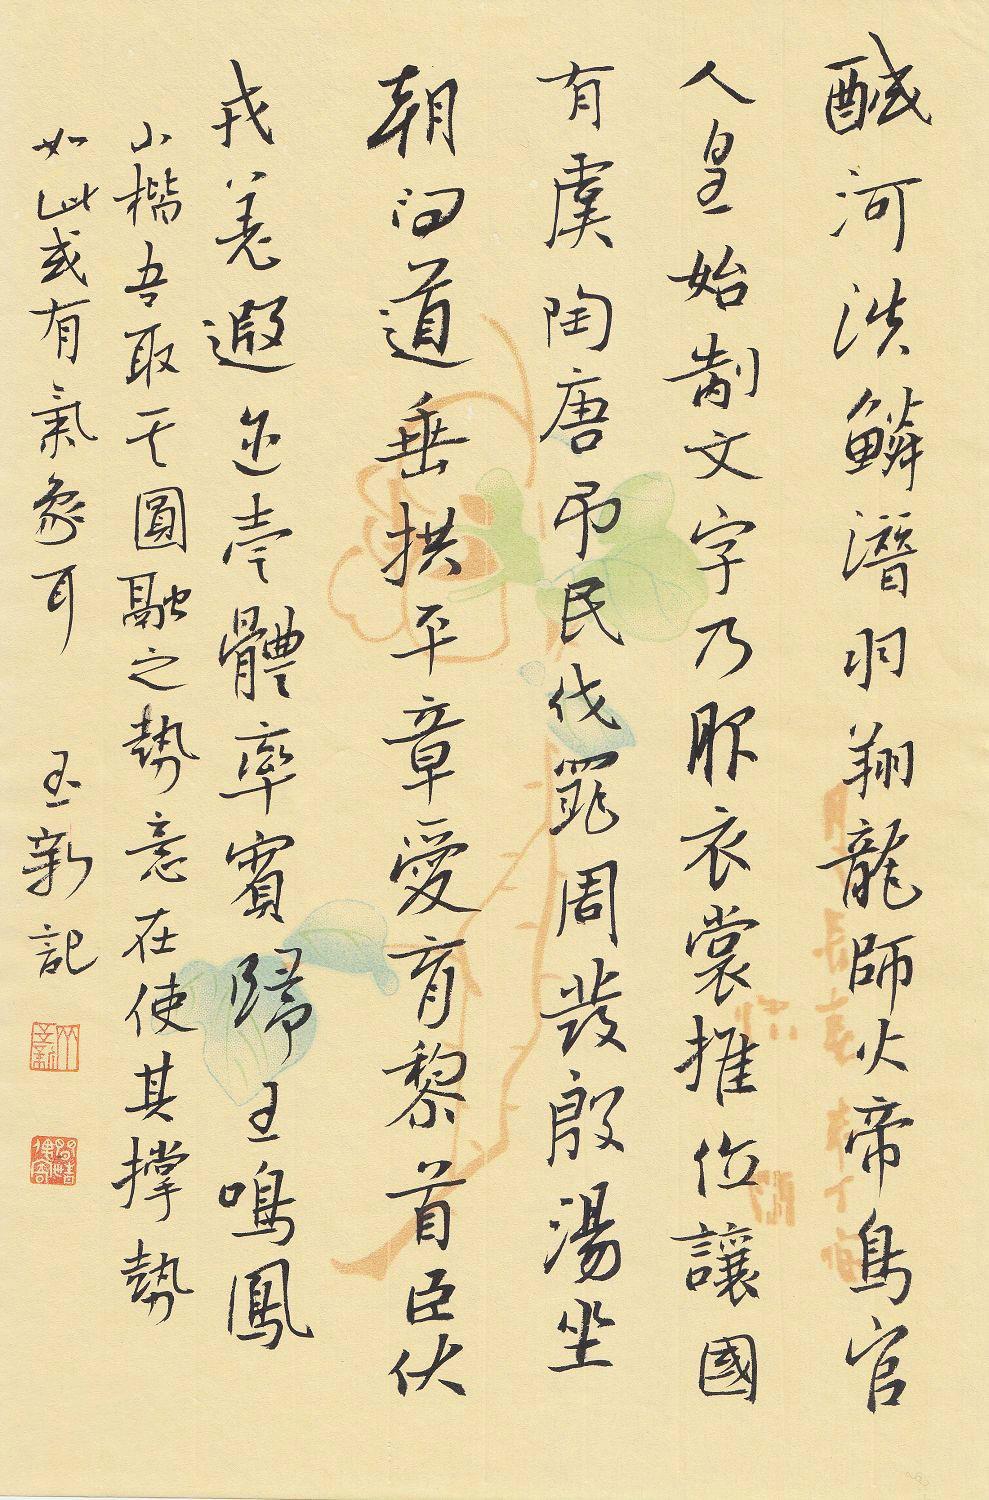 醎河淡鱗潛羽翔龍師火帝鳥官
人皇始制文字乃服衣裳推位讓國
有虞陶唐弔民伐罪周發殷湯坐
朝問道垂拱平章愛育黎首臣伏
戎羌遐迩壹體率賓歸王鳴鳳
小楷吾取其圓融之勢意在使其撑勢
如此或有氣象耳 玉新記